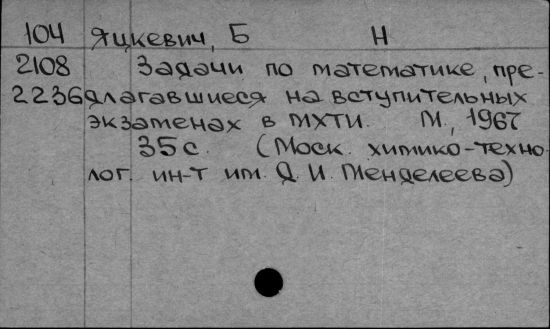 104 Яцкевич, Б Н
2108 Задачи по математике, пре-
2236 длагавшиеся на вступительных
экзаменах в МХТИ. М., 1967
35 с. (Моск. химико-техно-
лог. ин-т им. Д. И. Менделеева)